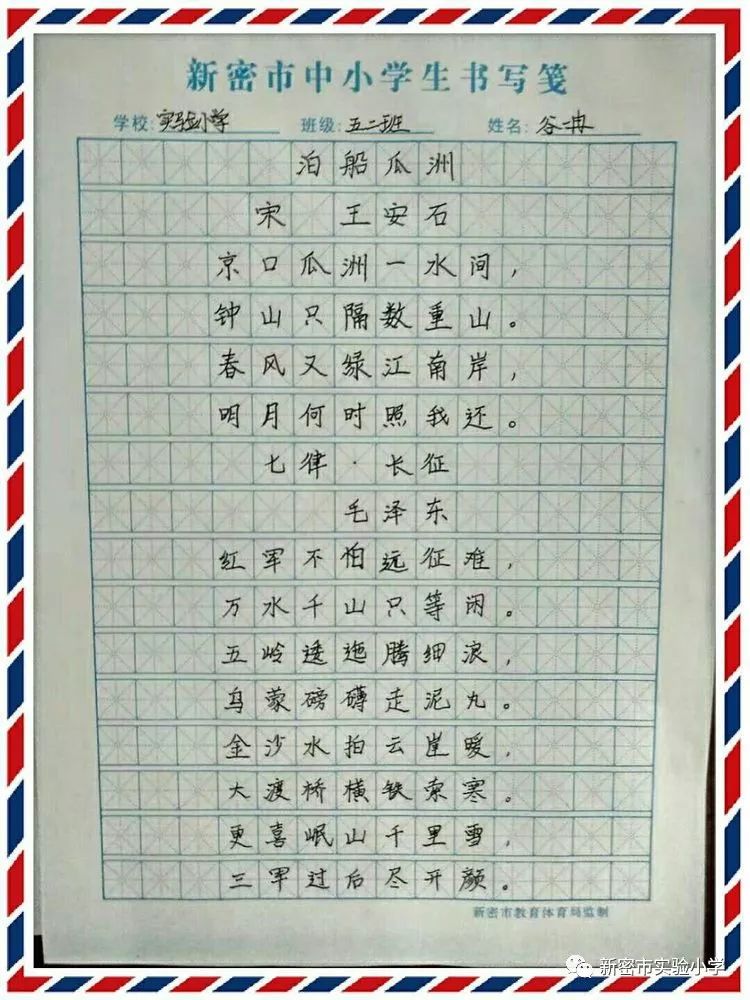 新密市中小学生书写笺
学校: 实验小学 班级: 五二班 姓名: 谷冉
泊船瓜洲
宋 王安石
京口瓜洲一水间，
钟山只隔数重山。
春风又绿江南岸，
明月何时照我还。
七律·长征
毛泽东
红军不怕远征难，
万水千山只等闲。
五岭逶迤腾细浪，
乌蒙磅礴走泥丸。
金沙水拍云崖暖，
大渡桥横铁索寒。
更喜岷山千里雪，
三军过后尽开颜。
新密市教育体育局监制
新密市实验小学